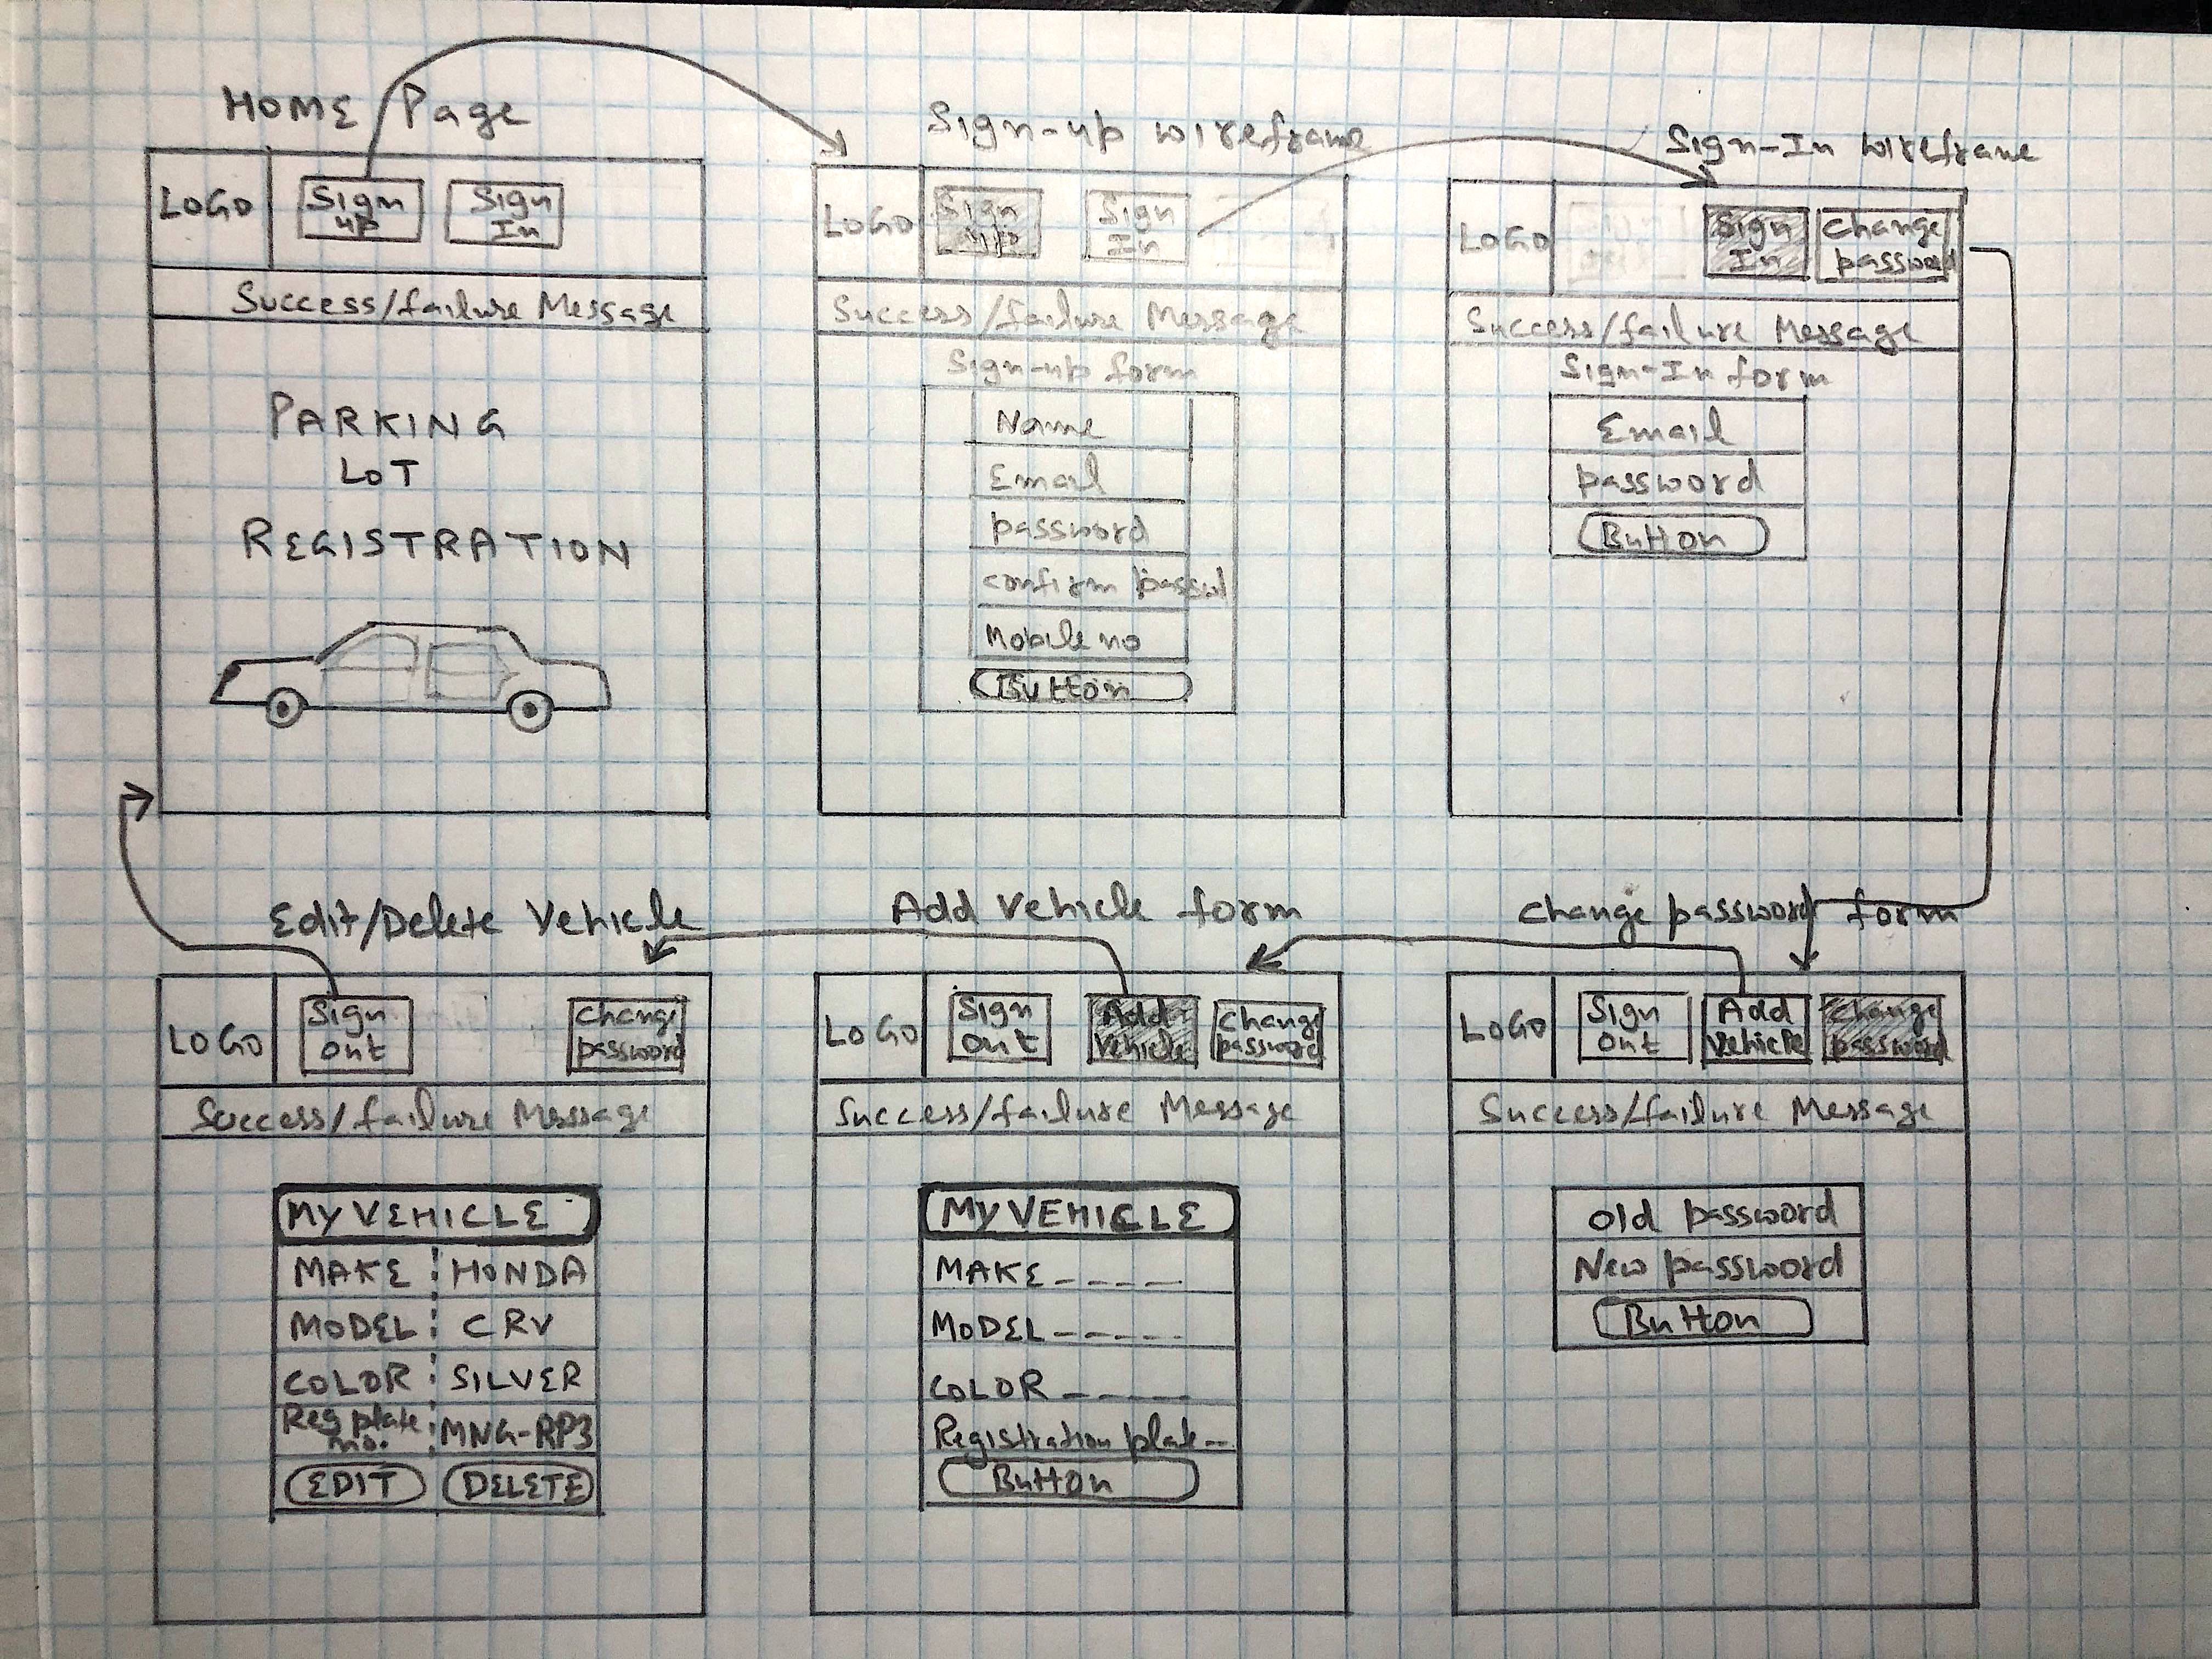 HOME Page
LOGO
Sign
up
Sign
In
Success/failure Message
PARKING
LOT
REGISTRATION
Sign-up wireframe
LOGO
Sign
up
Sign
In
Success/failure Message
Sign-up form
Name
Email
password
confirm passwd
Mobile no
Button
Sign-In wireframe
LOGO
Sign
In
change
password
Success/failure Message
Sign-In form
Email
password
Button
Edit/Delete Vehicle
LOGO
Sign
out
change
password
Success/failure Message
MY VEHICLE
MAKE : HONDA
MODEL : CRV
COLOR : SILVER
Reg plate
no. : MNG-RP3
EDIT DELETE
Add Vehicle form
LOGO
Sign
out
Add
Vehicle
change
password
Success/failure Message
MY VEHICLE
MAKE ----
MODEL -----
COLOR -----
Registration plate --
Button
change password form
LOGO
Sign
out
Add
Vehicle
change
password
Success/failure Message
old password
New password
Button